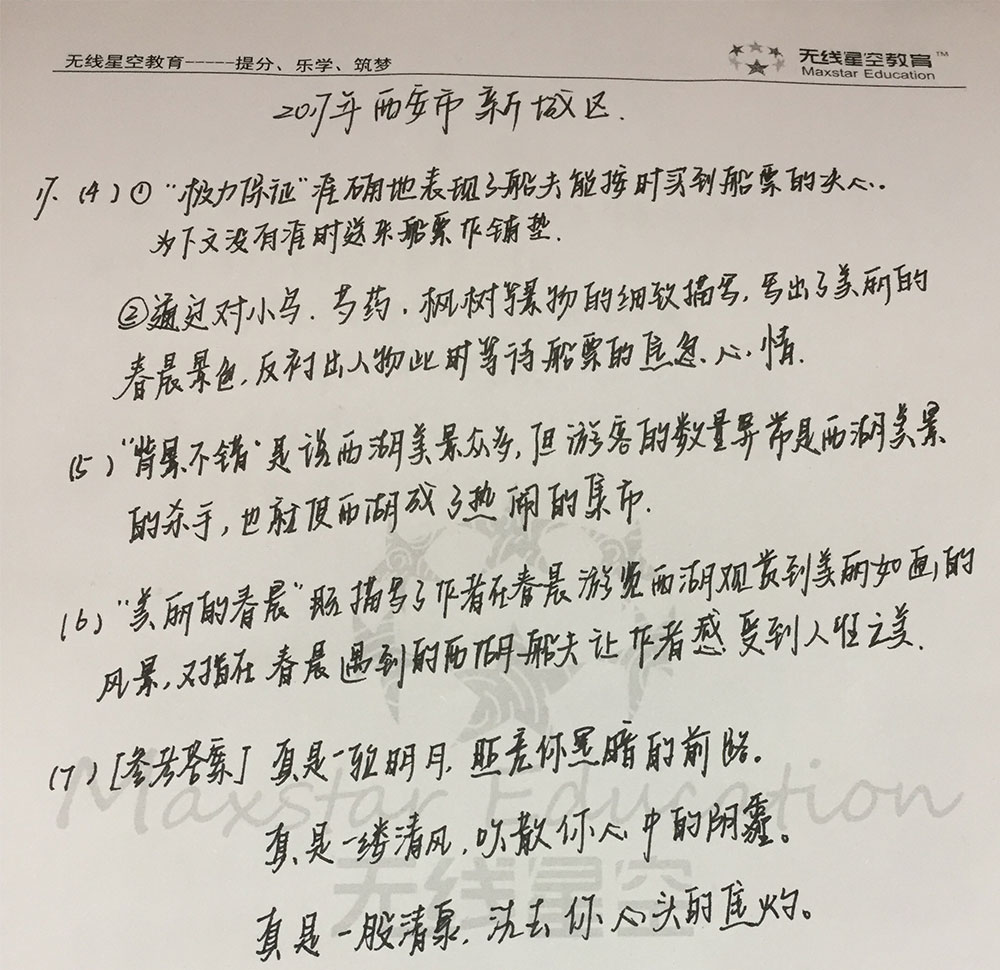 无线星空教育-----提分、乐学、筑梦
无线星空教育™
Maxstar Education
2017年西安市新城区.
17. (4) ① "极力保证"准确地表现了船夫能按时买到船票的决心.
为下文没有准时送来船票作铺垫.
②通过对小鸟.芍药.枫树等景物的细致描写,写出了美丽的
春晨景色,反衬出人物此时等待船票的焦急心情.
(5) "背景不错"是说西湖美景众多,但游客的数量异常是西湖美景
的杀手,也就使西湖成了热闹的集市.
(6) "美丽的春晨"既描写了作者在春晨游览西湖观赏到美丽如画的
风景,又指在春晨遇到的西湖船夫让作者感受到人性之美.
(7) [参考答案] 真是一轮明月,照亮你黑暗的前路。
Maxstar Education
真是一缕清风,吹散你心中的阴霾。
无线星空
真是一股清泉,洗去你心头的焦灼。